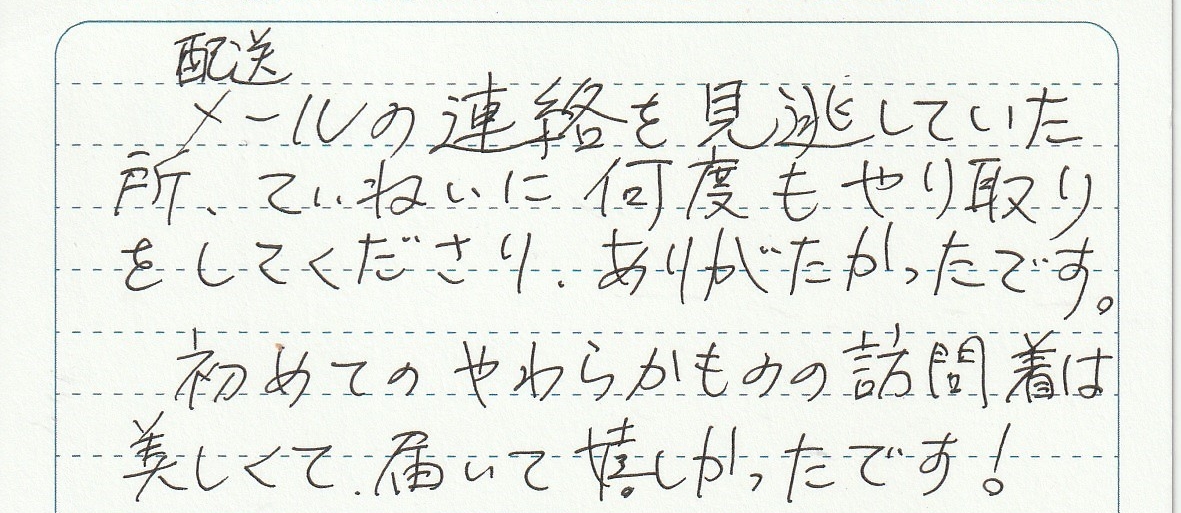 配送
メールの連絡を見逃していた
所、ていねいに何度もやり取り
をしてくださり、ありがたかったです。
初めてのやわらかものの訪問着は
美しくて、届いて嬉しかったです!